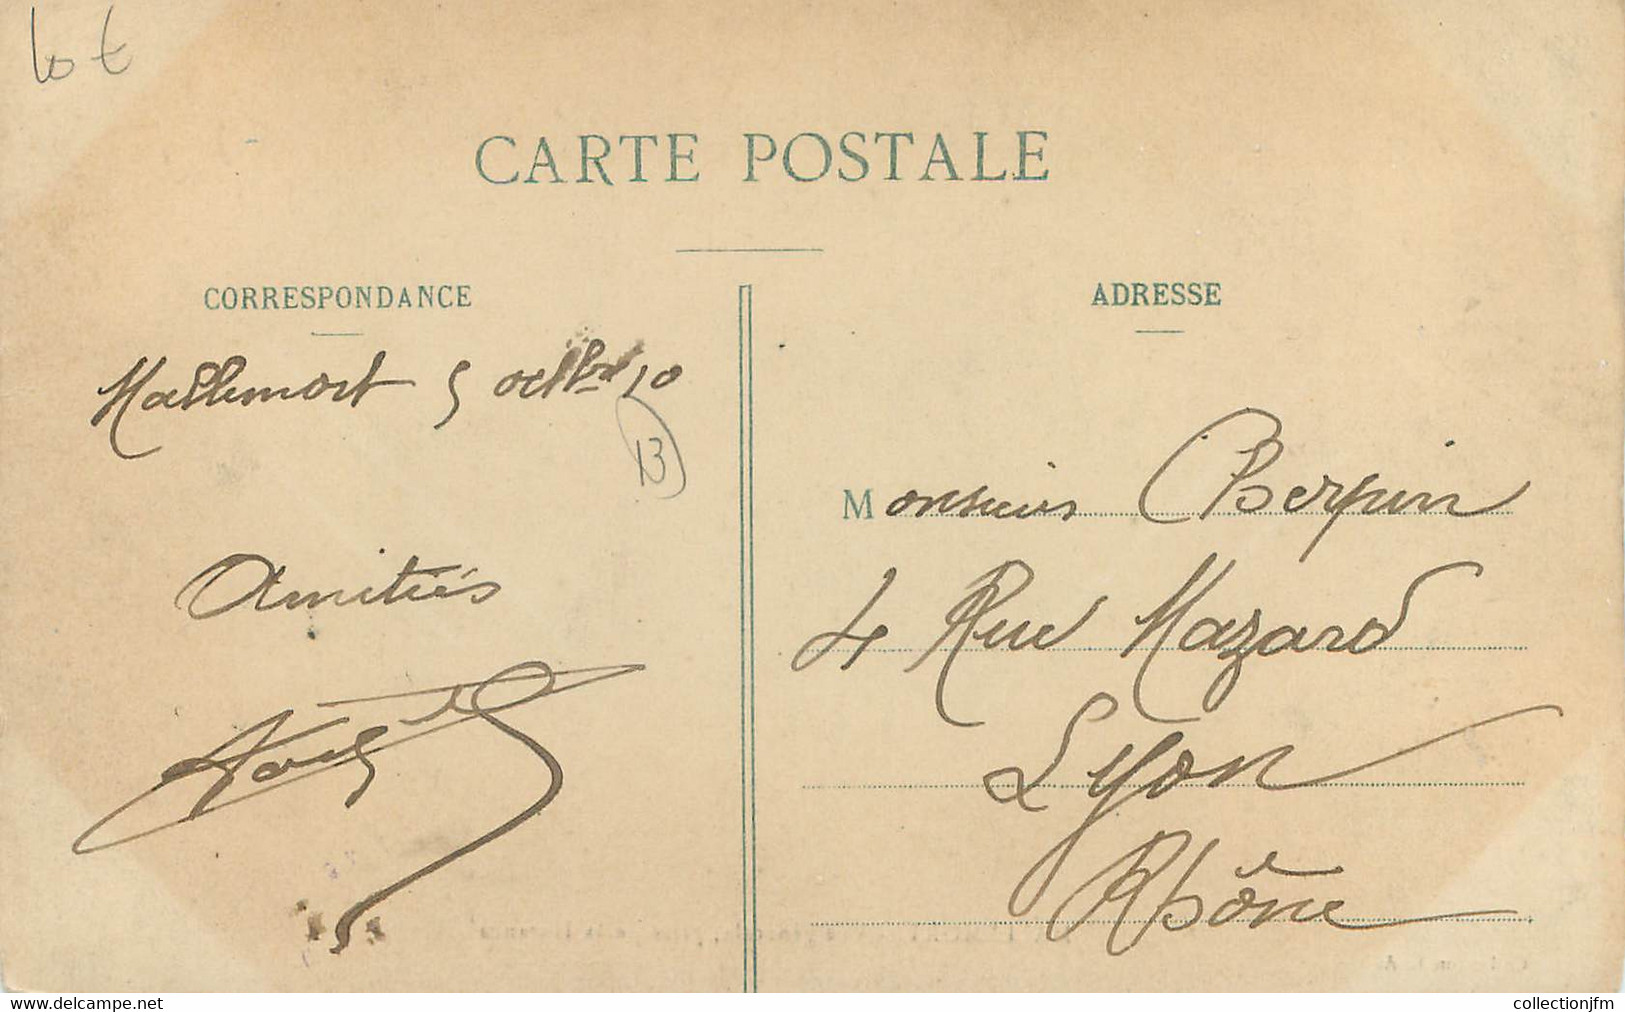 10 €
CARTE POSTALE
CORRESPONDANCE
Mallemort 5 octbre 10
13
Amitiés
ADRESSE
Monsieur Berpin
4 Rue Mazard
Lyon
Rhône
collectionjfm